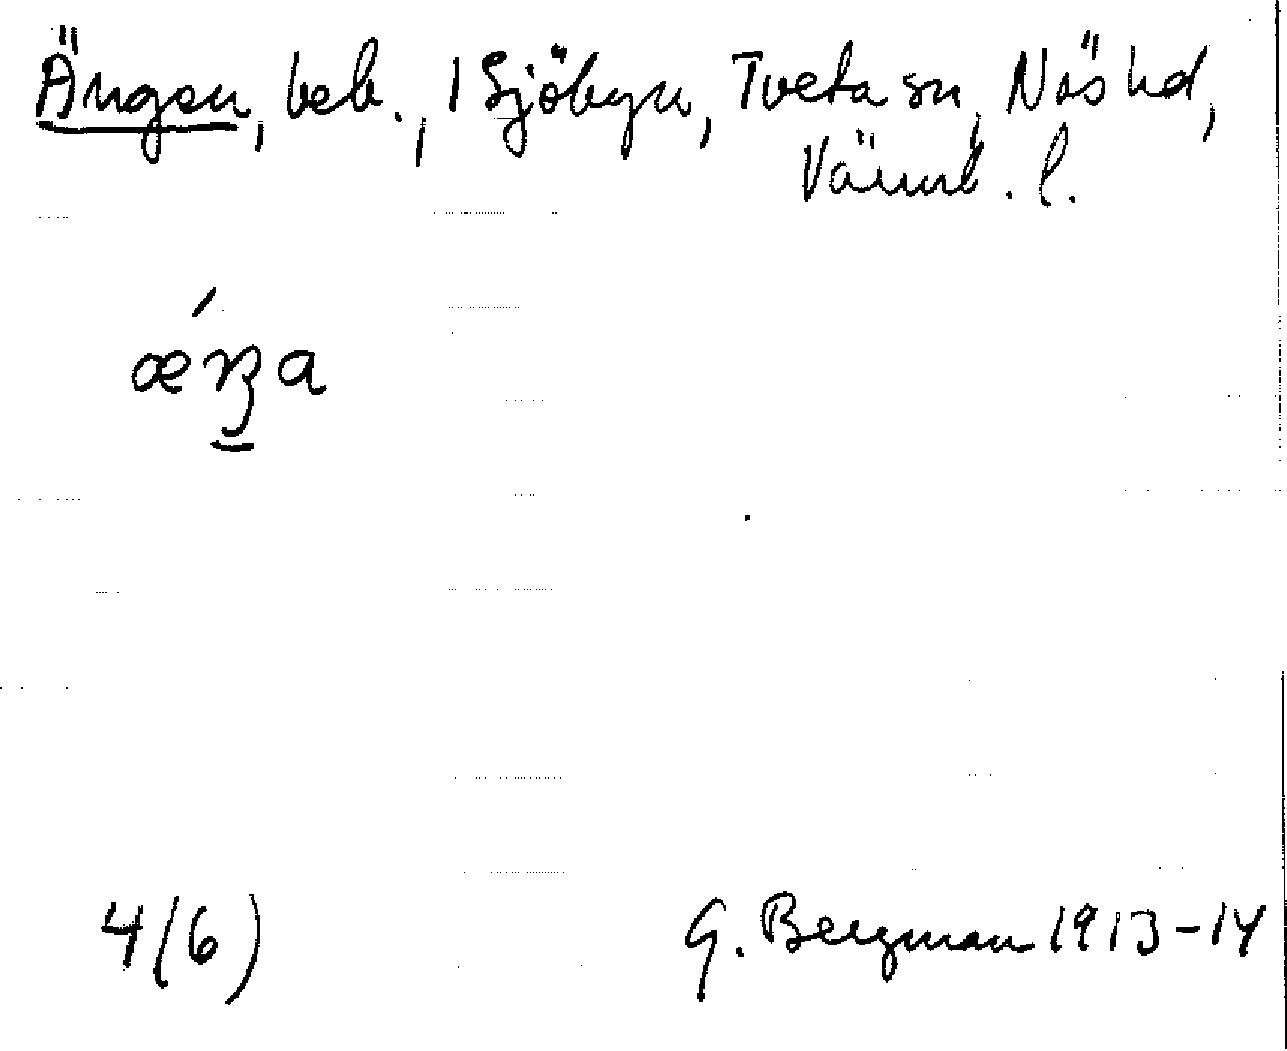 Ängen, beb., 1 Sjöbyn, Tveta sn, Näs hd,
Värml. l.
4(6)
G. Bergman 1913-14